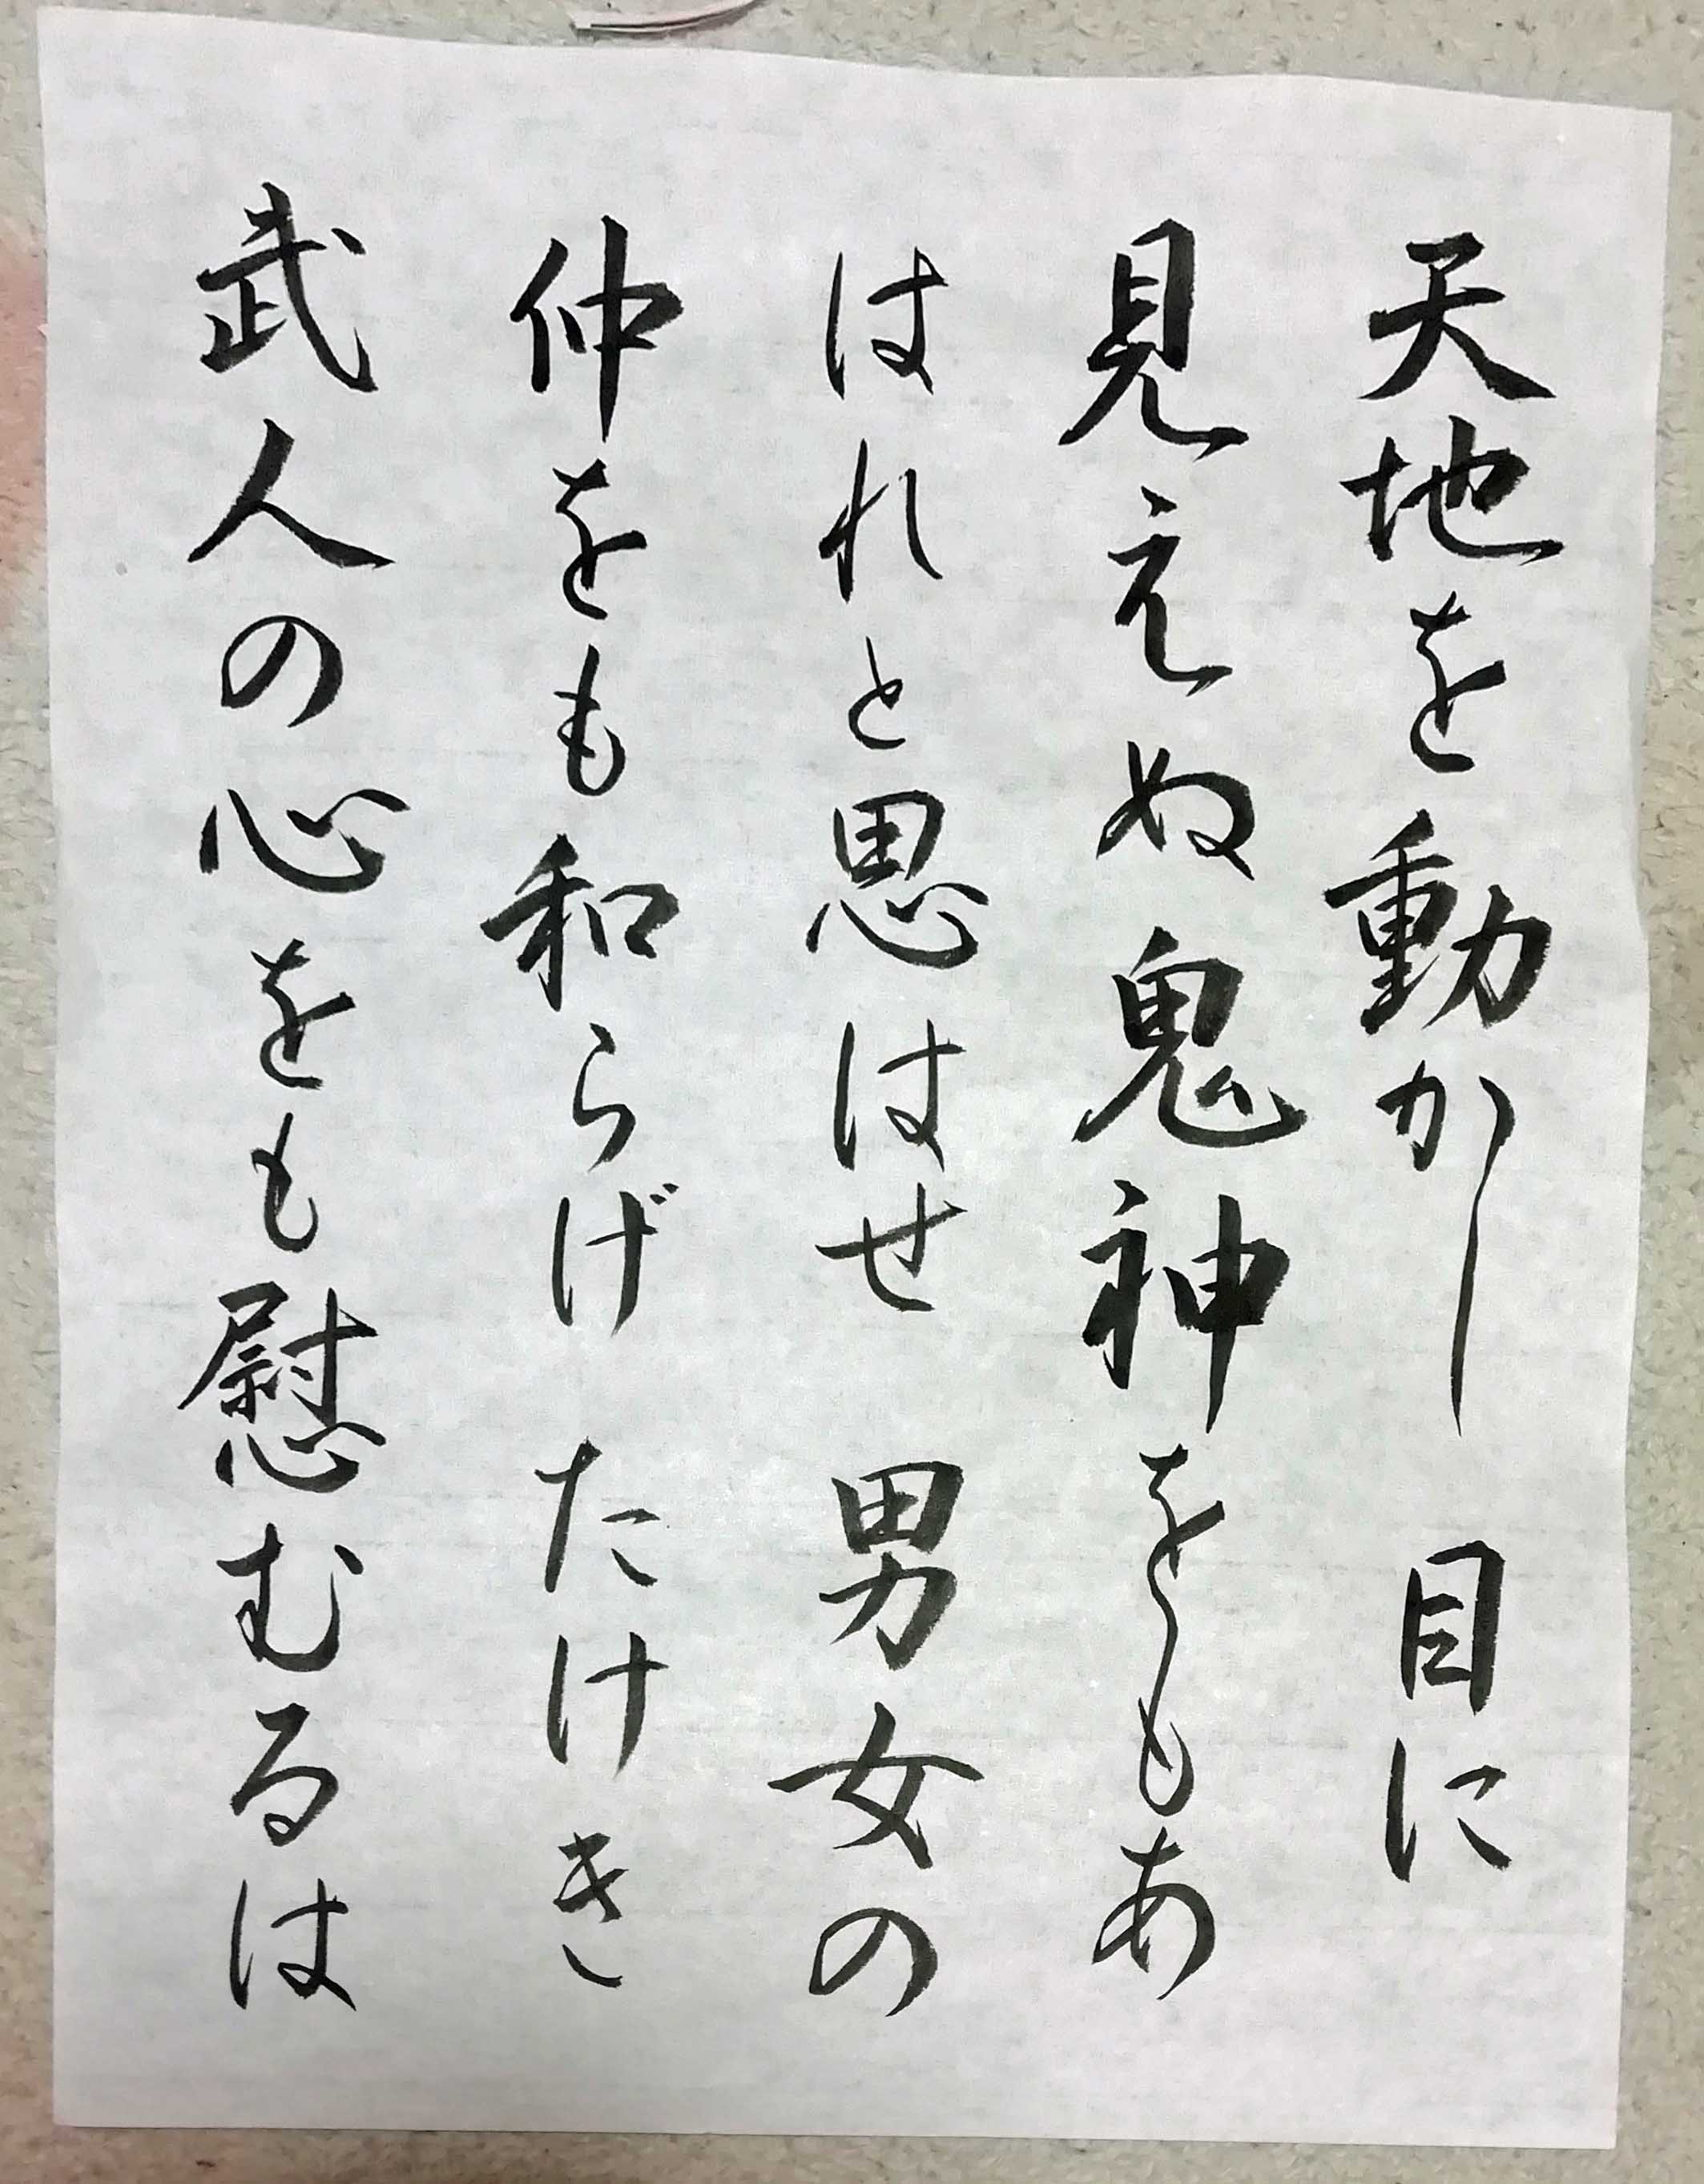 天地を動かし 目に
見えぬ鬼神をもあ
はれと思はせ 男女の
仲をも和らげ たけき
武人の心をも慰むるは